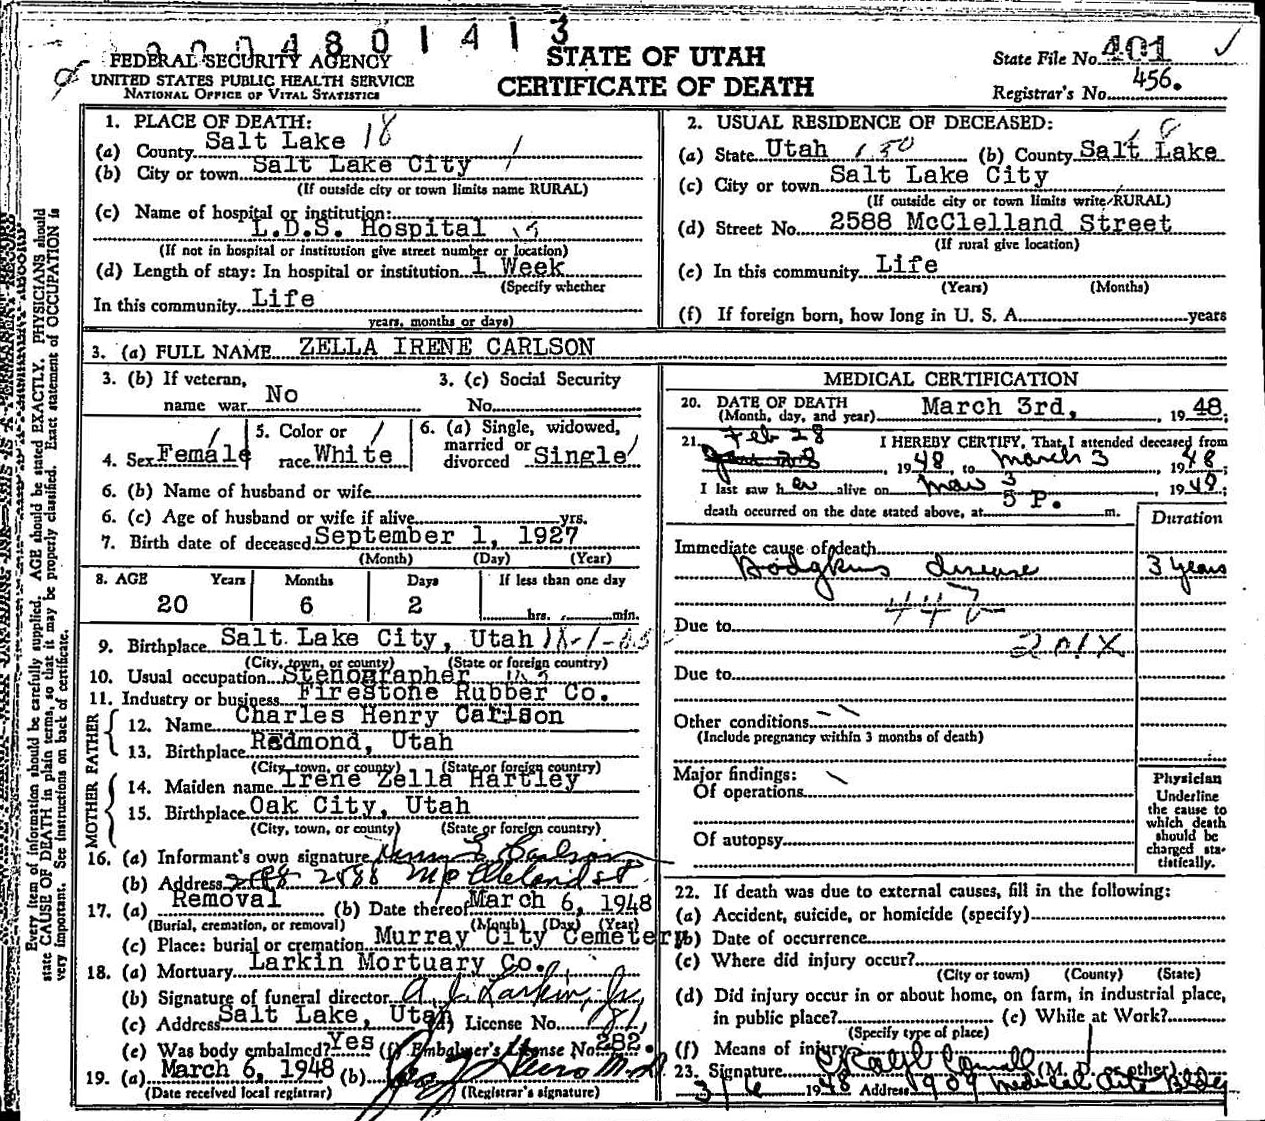 0004801413
FEDERAL SECURITY AGENCY
UNITED STATES PUBLIC HEALTH SERVICE
NATIONAL OFFICE OF VITAL STATISTICS
STATE OF UTAH
CERTIFICATE OF DEATH
State File No. 401
Registrar's No. 456.
Every item of information should be carefully supplied. AGE should be stated EXACTLY. PHYSICIANS should
state CAUSE OF DEATH in plain terms, so that it may be properly classified. Exact statement of OCCUPATION is
very important. See instructions on back of certificate.
1. PLACE OF DEATH:
(a) County Salt Lake 18
(b) City or town Salt Lake City
(If outside city or town limits name RURAL)
(c) Name of hospital or institution:
L.D.S. Hospital
(If not in hospital or institution give street number or location)
(d) Length of stay: In hospital or institution 1 Week
(Specify whether
In this community Life
years, months or days)
2. USUAL RESIDENCE OF DECEASED:
(a) State Utah (b) County Salt Lake
(c) City or town Salt Lake City
(If outside city or town limits write RURAL)
(d) Street No. 2588 McClelland Street
(If rural give location)
(e) In this community Life
(Years) (Months)
(f) If foreign born, how long in U. S. A. years
3. (a) FULL NAME ZELLA IRENE CARLSON
3. (b) If veteran,
name war No
3. (c) Social Security
No.
4. Sex Female
5. Color or
race White
6. (a) Single, widowed,
married or
divorced Single
6. (b) Name of husband or wife
6. (c) Age of husband or wife if alive yrs.
7. Birth date of deceased September 1, 1927
(Month) (Day) (Year)
8. AGE Years Months Days If less than one day
20 6 2 hrs. min.
9. Birthplace Salt Lake City, Utah
(City, town, or county) (State or foreign country)
10. Usual occupation Stenographer
11. Industry or business Firestone Rubber Co.
FATHER
12. Name Charles Henry Carlson
13. Birthplace Redmond, Utah
(City, town, or county) (State or foreign country)
MOTHER
14. Maiden name Irene Zella Hartley
15. Birthplace Oak City, Utah
(City, town, or county) (State or foreign country)
16. (a) Informant's own signature Henry Carlson
(b) Address 2588 McClelland st
17. (a) Removal (b) Date thereof March 6, 1948
(Burial, cremation, or removal) (Month) (Day) (Year)
(c) Place: burial or cremation Murray City Cemetery
18. (a) Mortuary Larkin Mortuary Co.
(b) Signature of funeral director A. J. Larkin, Jr,
(c) Address Salt Lake, Utah (d) License No.
(e) Was body embalmed? Yes (f) Embalmer's License No. 282.
19. (a) March 6, 1948 (b) M.D.
(Date received local registrar) (Registrar's signature)
MEDICAL CERTIFICATION
20. DATE OF DEATH
(Month, day, and year) March 3rd, , 1948;
21. I HEREBY CERTIFY, That I attended deceased from
Feb 28 , 1948, to March 3 , 1948;
I last saw her alive on Mar 3 , 1948;
death occurred on the date stated above, at 5 P. m.
Duration
Immediate cause of death
Hodgkins disease 3 years
Due to
201X
Due to
Other conditions
(Include pregnancy within 3 months of death)
Major findings:
Of operations
Of autopsy
Physician
Underline
the cause to
which death
should be
charged sta-
tistically.
22. If death was due to external causes, fill in the following:
(a) Accident, suicide, or homicide (specify)
(b) Date of occurrence
(c) Where did injury occur?
(City or town) (County) (State)
(d) Did injury occur in or about home, on farm, in industrial place,
in public place? (e) While at Work?
(Specify type of place)
(f) Means of injury
23. Signature Ralph (M. D. or other)
3/6 1948 Address 909 Medical Arts Bldg